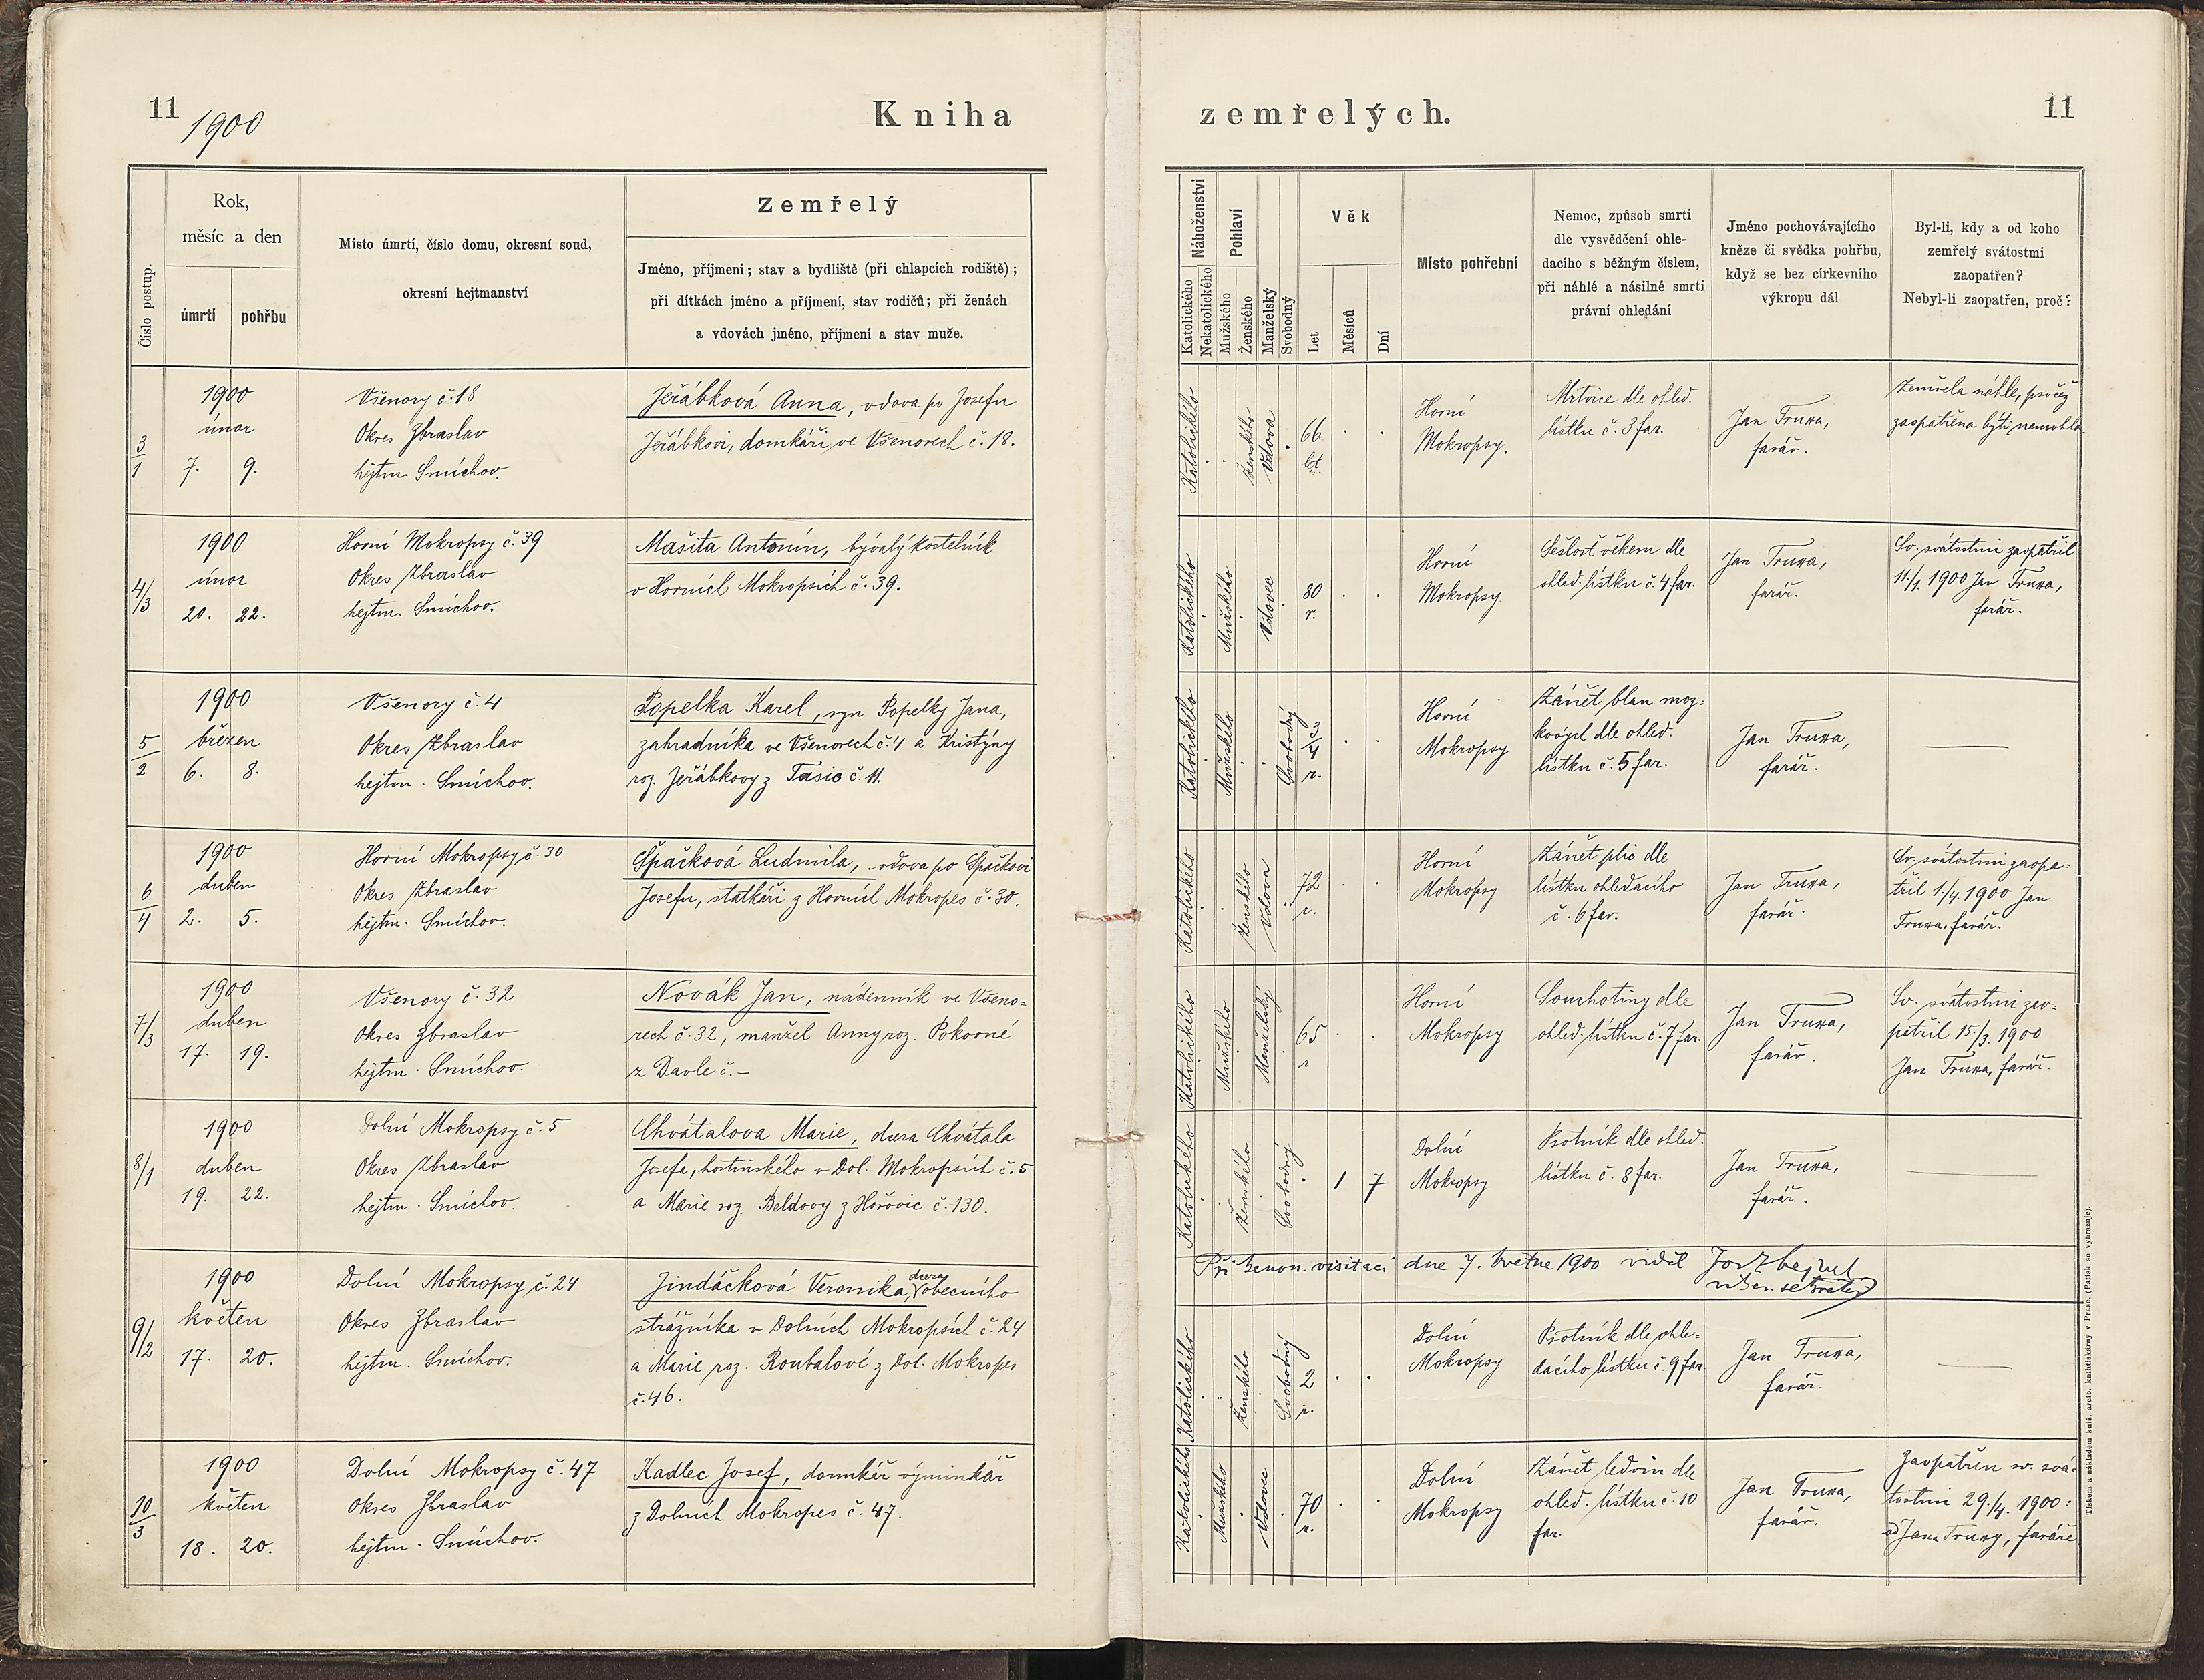 11
1900
Kniha
Číslo postup.
Rok,
měsíc a den
úmrtí
pohřbu
Místo úmrtí, číslo domu, okresní soud,
okresní hejtmanství
Zemřelý
Jméno, příjmení; stav a bydliště (při chlapcích rodiště);
při dítkách jméno a příjmení, stav rodičů; při ženách
a vdovách jméno, příjmení a stav muže.
3/1
1900
únor
7. 9.
Všenory č. 18
Okres Zbraslav
hejtm. Smíchov.
Jeřábková Anna, vdova po Josefu
Jeřábkovi, domkáři ve Všenorech č. 18.
4/3
1900
únor
20. 22.
Horní Mokropsy č. 39
Okres Zbraslav
hejtm. Smíchov.
Mašita Antonín, bývalý kostelník
v Horních Mokropsích č. 39.
5/2
1900
březen
6. 8.
Všenory č. 4
Okres Zbraslav
hejtm. Smíchov.
Popelka Karel, syn Popelky Jana,
zahradníka ve Všenorech č. 4 a Kristýny
roz. Jeřábkovy z Tasic č. 11.
6/4
1900
duben
2. 5.
Horní Mokropsy č. 30
Okres Zbraslav
hejtm. Smíchov.
Špačková Ludmila, vdova po Špačkovi
Josefu, statkáři z Horních Mokropes č. 30.
7/3
1900
duben
17. 19.
Všenory č. 32
Okres Zbraslav
hejtm. Smíchov.
Novák Jan, nádenník ve Všeno-
rech č. 32, manžel Anny roz. Pokorné
z Davle č. –
8/1
1900
duben
19. 22.
Dolní Mokropsy č. 5
Okres Zbraslav
hejtm. Smíchov.
Chvátalova Marie, dcera Chvátala
Josefa, hostinského v Dol. Mokropsích č. 5
a Marie roz. Beldovy z Hořovic č. 130.
9/2
1900
květen
17. 20.
Dolní Mokropsy č. 24
Okres Zbraslav
hejtm. Smíchov.
Jindáčková Veronika, dcera obecního
strážníka v Dolních Mokropsích č. 24
a Marie roz. Roubalové z Dol. Mokropes
č. 46.
10/3
1900
květen
18. 20.
Dolní Mokropsy č. 47
Okres Zbraslav
hejtm. Smíchov.
Kadlec Josef, domkář výminkář
z Dolních Mokropes č. 47.
zemřelých.
11
Náboženství
Katolického
Nekatolického
Pohlaví
Mužského
Ženského
Manželský
Svobodný
Věk
Let
Měsíců
Dní
Místo pohřební
Nemoc, způsob smrti
dle vysvědčení ohle-
dacího s běžným číslem,
při náhlé a násilné smrti
právní ohledání
Jméno pochovávajícího
kněze či svědka pohřbu,
když se bez církevního
výkropu dál
Byl-li, kdy a od koho
zemřelý svátostmi
zaopatřen?
Nebyl-li zaopatřen, proč?
Katolického
Ženského
Vdova
66
let
Horní
Mokropsy.
Mrtvice dle ohled.
lístku č. 3 far.
Jan Truxa,
farář.
Zemřela náhle, pročež
zaopatřena býti nemohla.
Katolického
Mužského
Vdovec
80
r.
Horní
Mokropsy.
Sešlost věkem dle
ohled. lístku č. 4 far.
Jan Truxa,
farář.
Sv. svátostmi zaopatřil
11./1. 1900 Jan Truxa,
farář.
Katolického
Mužského
Svobodný
3/4
r.
Horní
Mokropsy
Zánět blan moz-
kových dle ohled.
lístku č. 5 far.
Jan Truxa,
farář.
Katolického
Ženského
Vdova
72
r.
Horní
Mokropsy
Zánět plic dle
lístku ohledacího
č. 6 far.
Jan Truxa,
farář.
Sv. svátostmi zaopa-
třil 1./4. 1900 Jan
Truxa, farář.
Katolického
Mužského
Manželský
65
r
Horní
Mokropsy
Souchotiny dle
ohled. lístku č. 7 far.
Jan Truxa,
farář.
Sv. svátostmi zao-
patřil 15./3. 1900
Jan Truxa, farář.
Katolického
Ženského
Svobodný
1 7
Dolní
Mokropsy
Psotník dle ohled.
lístku č. 8 far.
Jan Truxa,
farář.
Při kanon. visitaci dne 7. května 1900 viděl Jos
sekretář
Katolického
Ženského
Svobodný
2
r.
Dolní
Mokropsy
Psotník dle ohle-
dacího lístku č. 9 far.
Jan Truxa,
farář.
Katolického
Mužského
Vdovec
70
r.
Dolní
Mokropsy
Zánět ledvin dle
ohled. lístku č. 10
far.
Jan Truxa,
farář.
Zaopatřen sv. svá-
tostmi 29./4. 1900
od Jana Truxy, faráře
Tiskem a nákladem kníž. arcib. knihtiskárny v Praze. (Patisk se vyhrazuje).